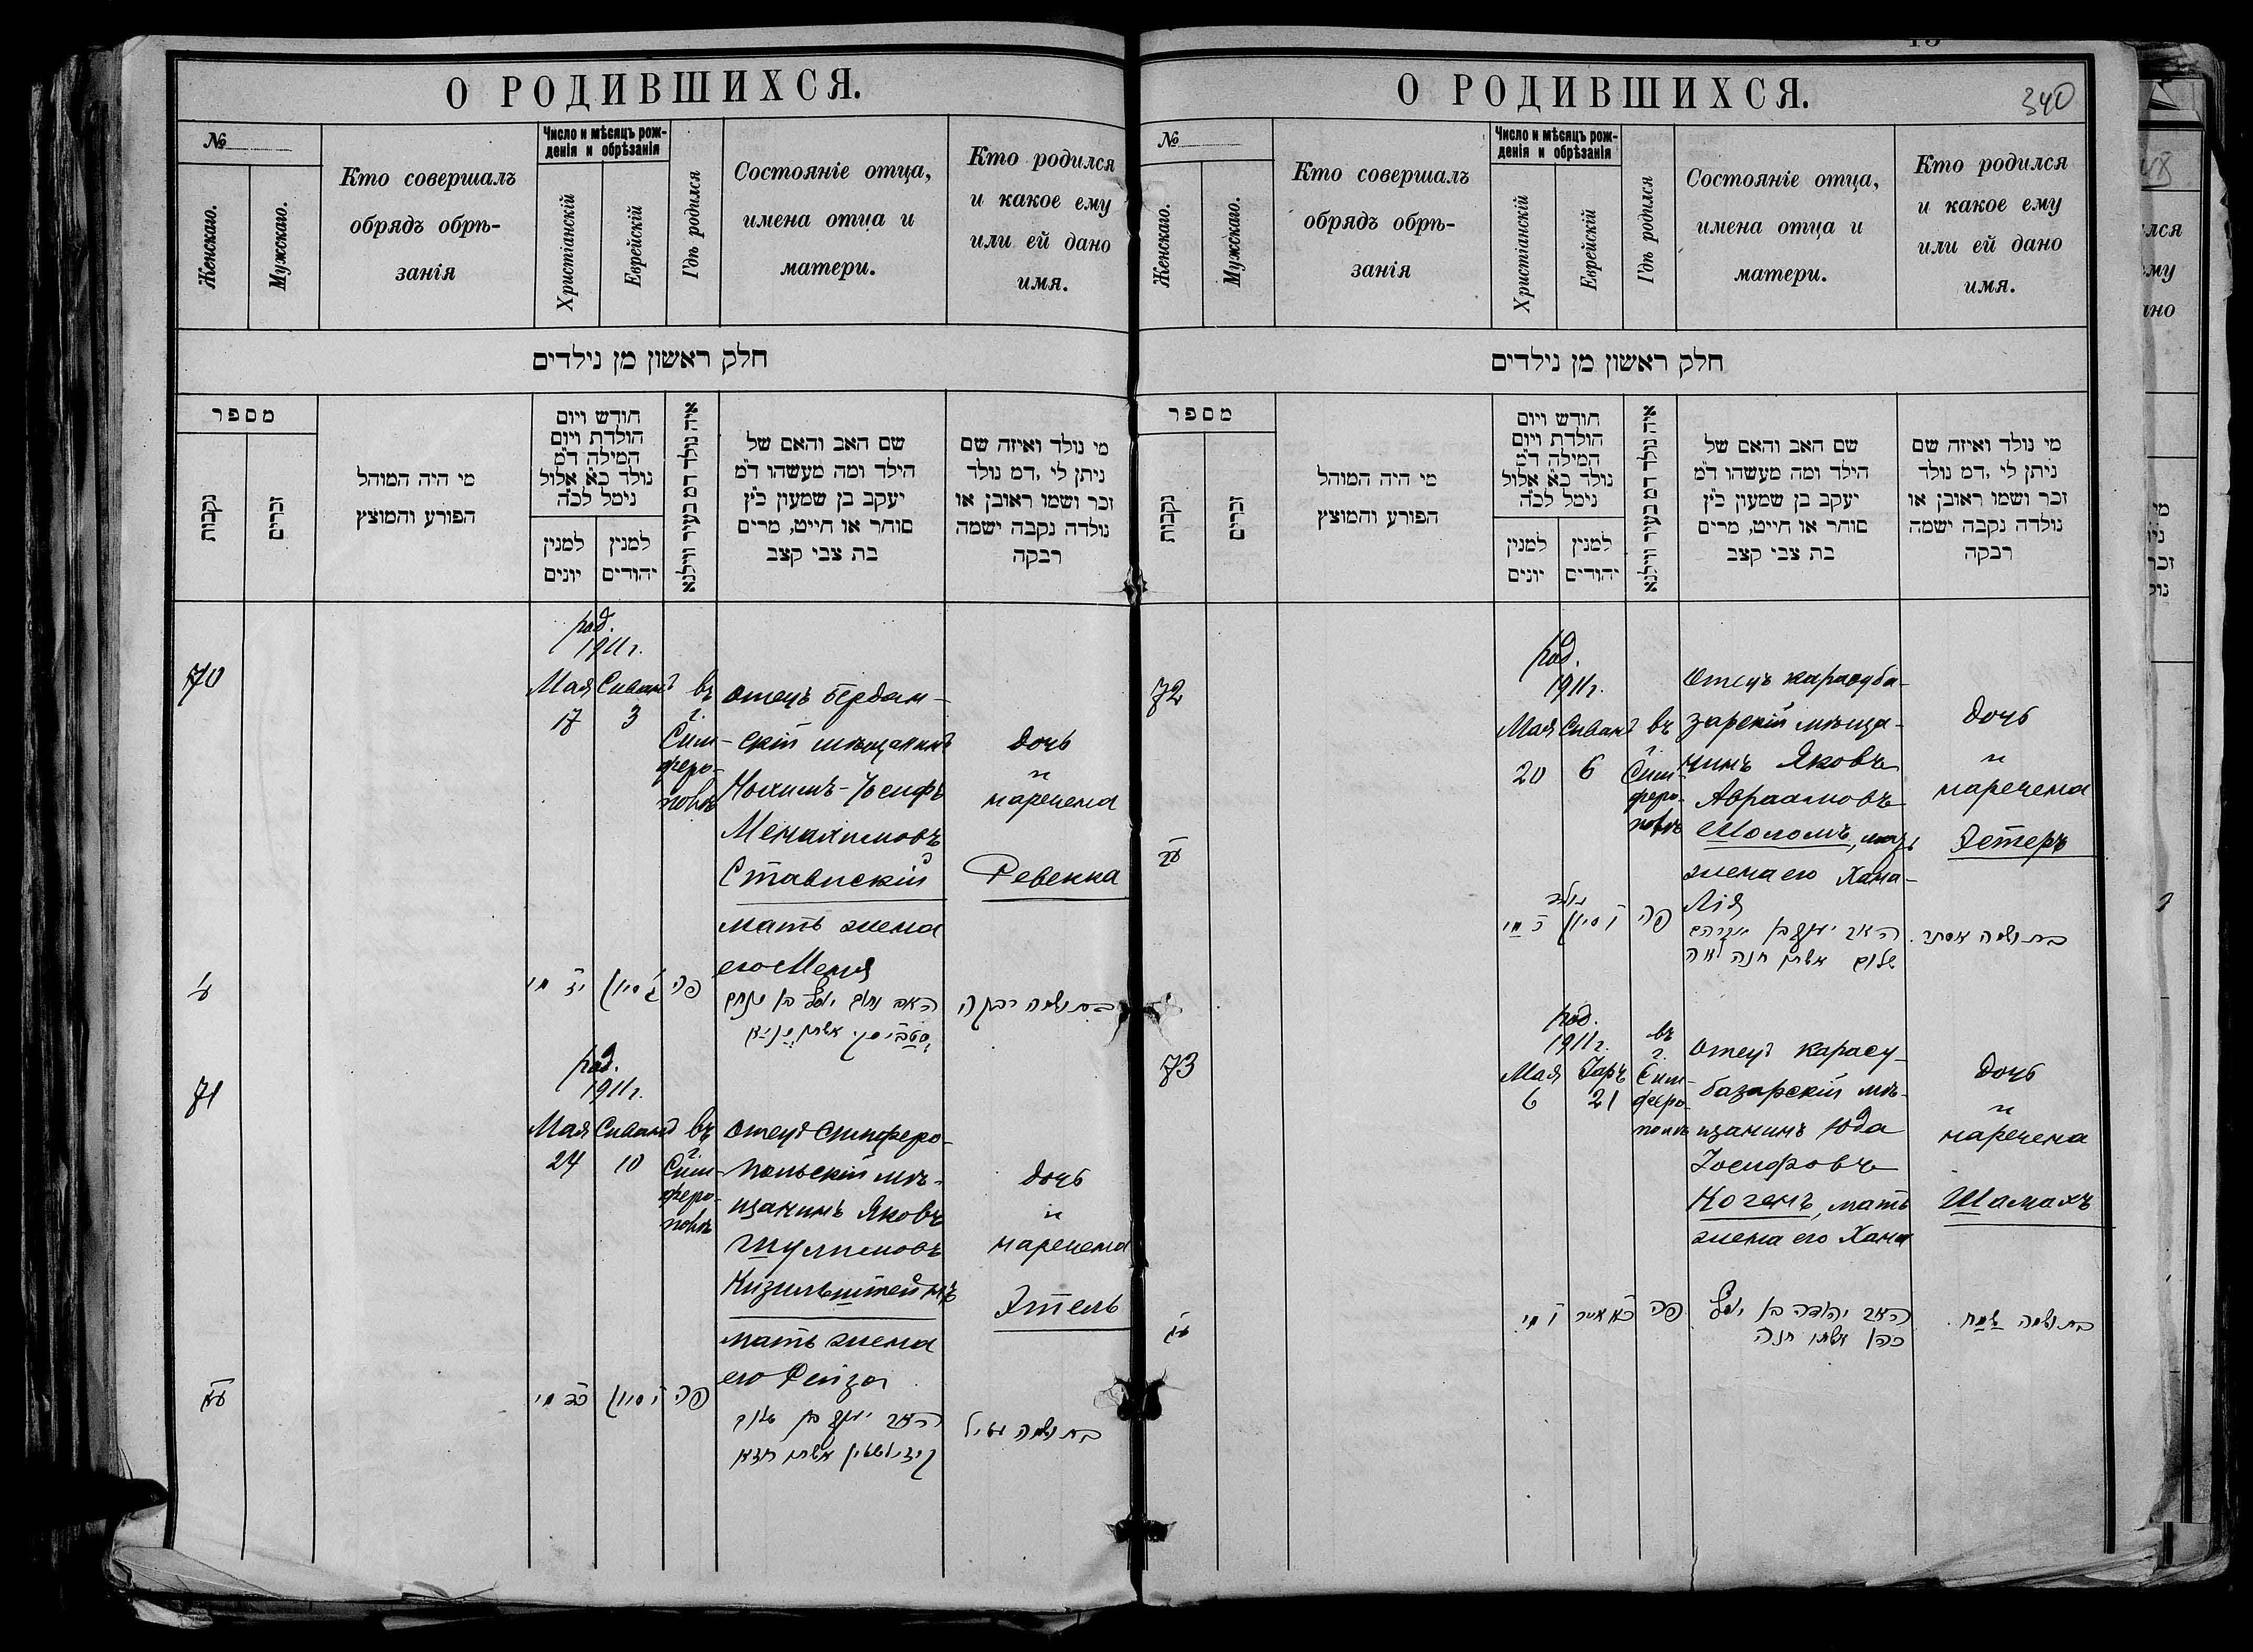 О РОДИВШИХСЯ.
№
Женскаго.
Мужскаго.
Кто совершалъ
обрядъ обрѣ-
занія
Число и мѣсяцъ рож-
денія и обрѣзанія
Христіанскій
Еврейскій
Гдѣ родился
Состояніе отца,
имена отца и
матери.
Кто родился
и какое ему
или ей дано
имя.
חלק ראשון מן נילדים
מספר
נקבות
זכרים
מי היה המוהל
הפורע והמוצץ
חודש ויום
הולדת ויום
המילה ד״מ
נולד כ״א אלול
נימל לכ״ה
למנין
יונים
למנין
יהודים
איה נולד דמ בעיר ווילנא
שם האב והאם של
הילד ומה מעשהו ד״מ
יעקב בן שמעון כ״ץ
סוחר או חייט, מרים
בת צבי קצב
מי נולד ואיזה שם
ניתן לי, דמ נולד
זכר ושמו ראובן או
נולדה נקבה ישמה
רבקה
70
род.
1911 г.
Мая Сиванъ
17 3
въ
г.
Сим-
феро-
полѣ
отецъ Бердян-
скій мѣщанинъ
Нохимъ-Іосифъ
Менахимовъ
Ставискій
мать жена
его Меня
дочь
и
наречена
Ревекка
ע
יז מי
ג סיון
פה
האב נחום יוסף בן מנחם
סטביסקי אשתו מניא
בת ושמה רבקה
71
род.
1911 г.
Мая Сиванъ
24 10
въ
г.
Сим-
феро-
полѣ
отецъ Симферо-
польскій мѣ-
щанинъ Яковъ
Шулимовъ
Кизильштейнъ
мать жена
его Рейза
дочь
и
наречена
Этель
עא
כד מי
י סיון
פה
האב יעקב בן שלום
קיזילשטיין אשתו רייזא
בת ושמה עטיל
О РОДИВШИХСЯ.
340
№
Женскаго.
Мужскаго.
Кто совершалъ
обрядъ обрѣ-
занія
Число и мѣсяцъ рож-
денія и обрѣзанія
Христіанскій
Еврейскій
Гдѣ родился
Состояніе отца,
имена отца и
матери.
Кто родился
и какое ему
или ей дано
имя.
חלק ראשון מן נילדים
מספר
נקבות
זכרים
מי היה המוהל
הפורע והמוצץ
חודש ויום
הולדת ויום
המילה ד״מ
נולד כ״א אלול
נימל לכ״ה
למנין
יונים
למנין
יהודים
איה נולד דמ בעיר ווילנא
שם האב והאם של
הילד ומה מעשהו ד״מ
יעקב בן שמעון כ״ץ
סוחר או חייט, מרים
בת צבי קצב
מי נולד ואיזה שם
ניתן לי, דמ נולד
זכר ושמו ראובן או
נולדה נקבה ישמה
רבקה
72
род.
1911 г.
Мая Сиванъ
20 6
въ
г.
Сим-
феро-
полѣ
Отецъ карасуба-
зарскій мѣща-
нинъ Яковъ
Авраамовъ
Шоломъ, мать
жена его Хана-
Лія
дочь
и
наречена
Эстеръ
עב
נולד
כ מי
ו סיון
פה
האב יעקב בן אברהם
שלום אשתו חנה לאה
בת ושמה אסתר.
73
род.
1911 г.
Мая Іаръ
6 21
въ
г.
Сим-
феро-
полѣ
отецъ карасу-
базарскій мѣ-
щанинъ Юда
Іосифовъ
Когенъ, мать
жена его Хана
дочь
и
наречена
Шамахъ
עג
ו מי
כא אייר
פה
האב יהודה בן יוסף
כהן אשתו חנה
בת ושמה שמח.